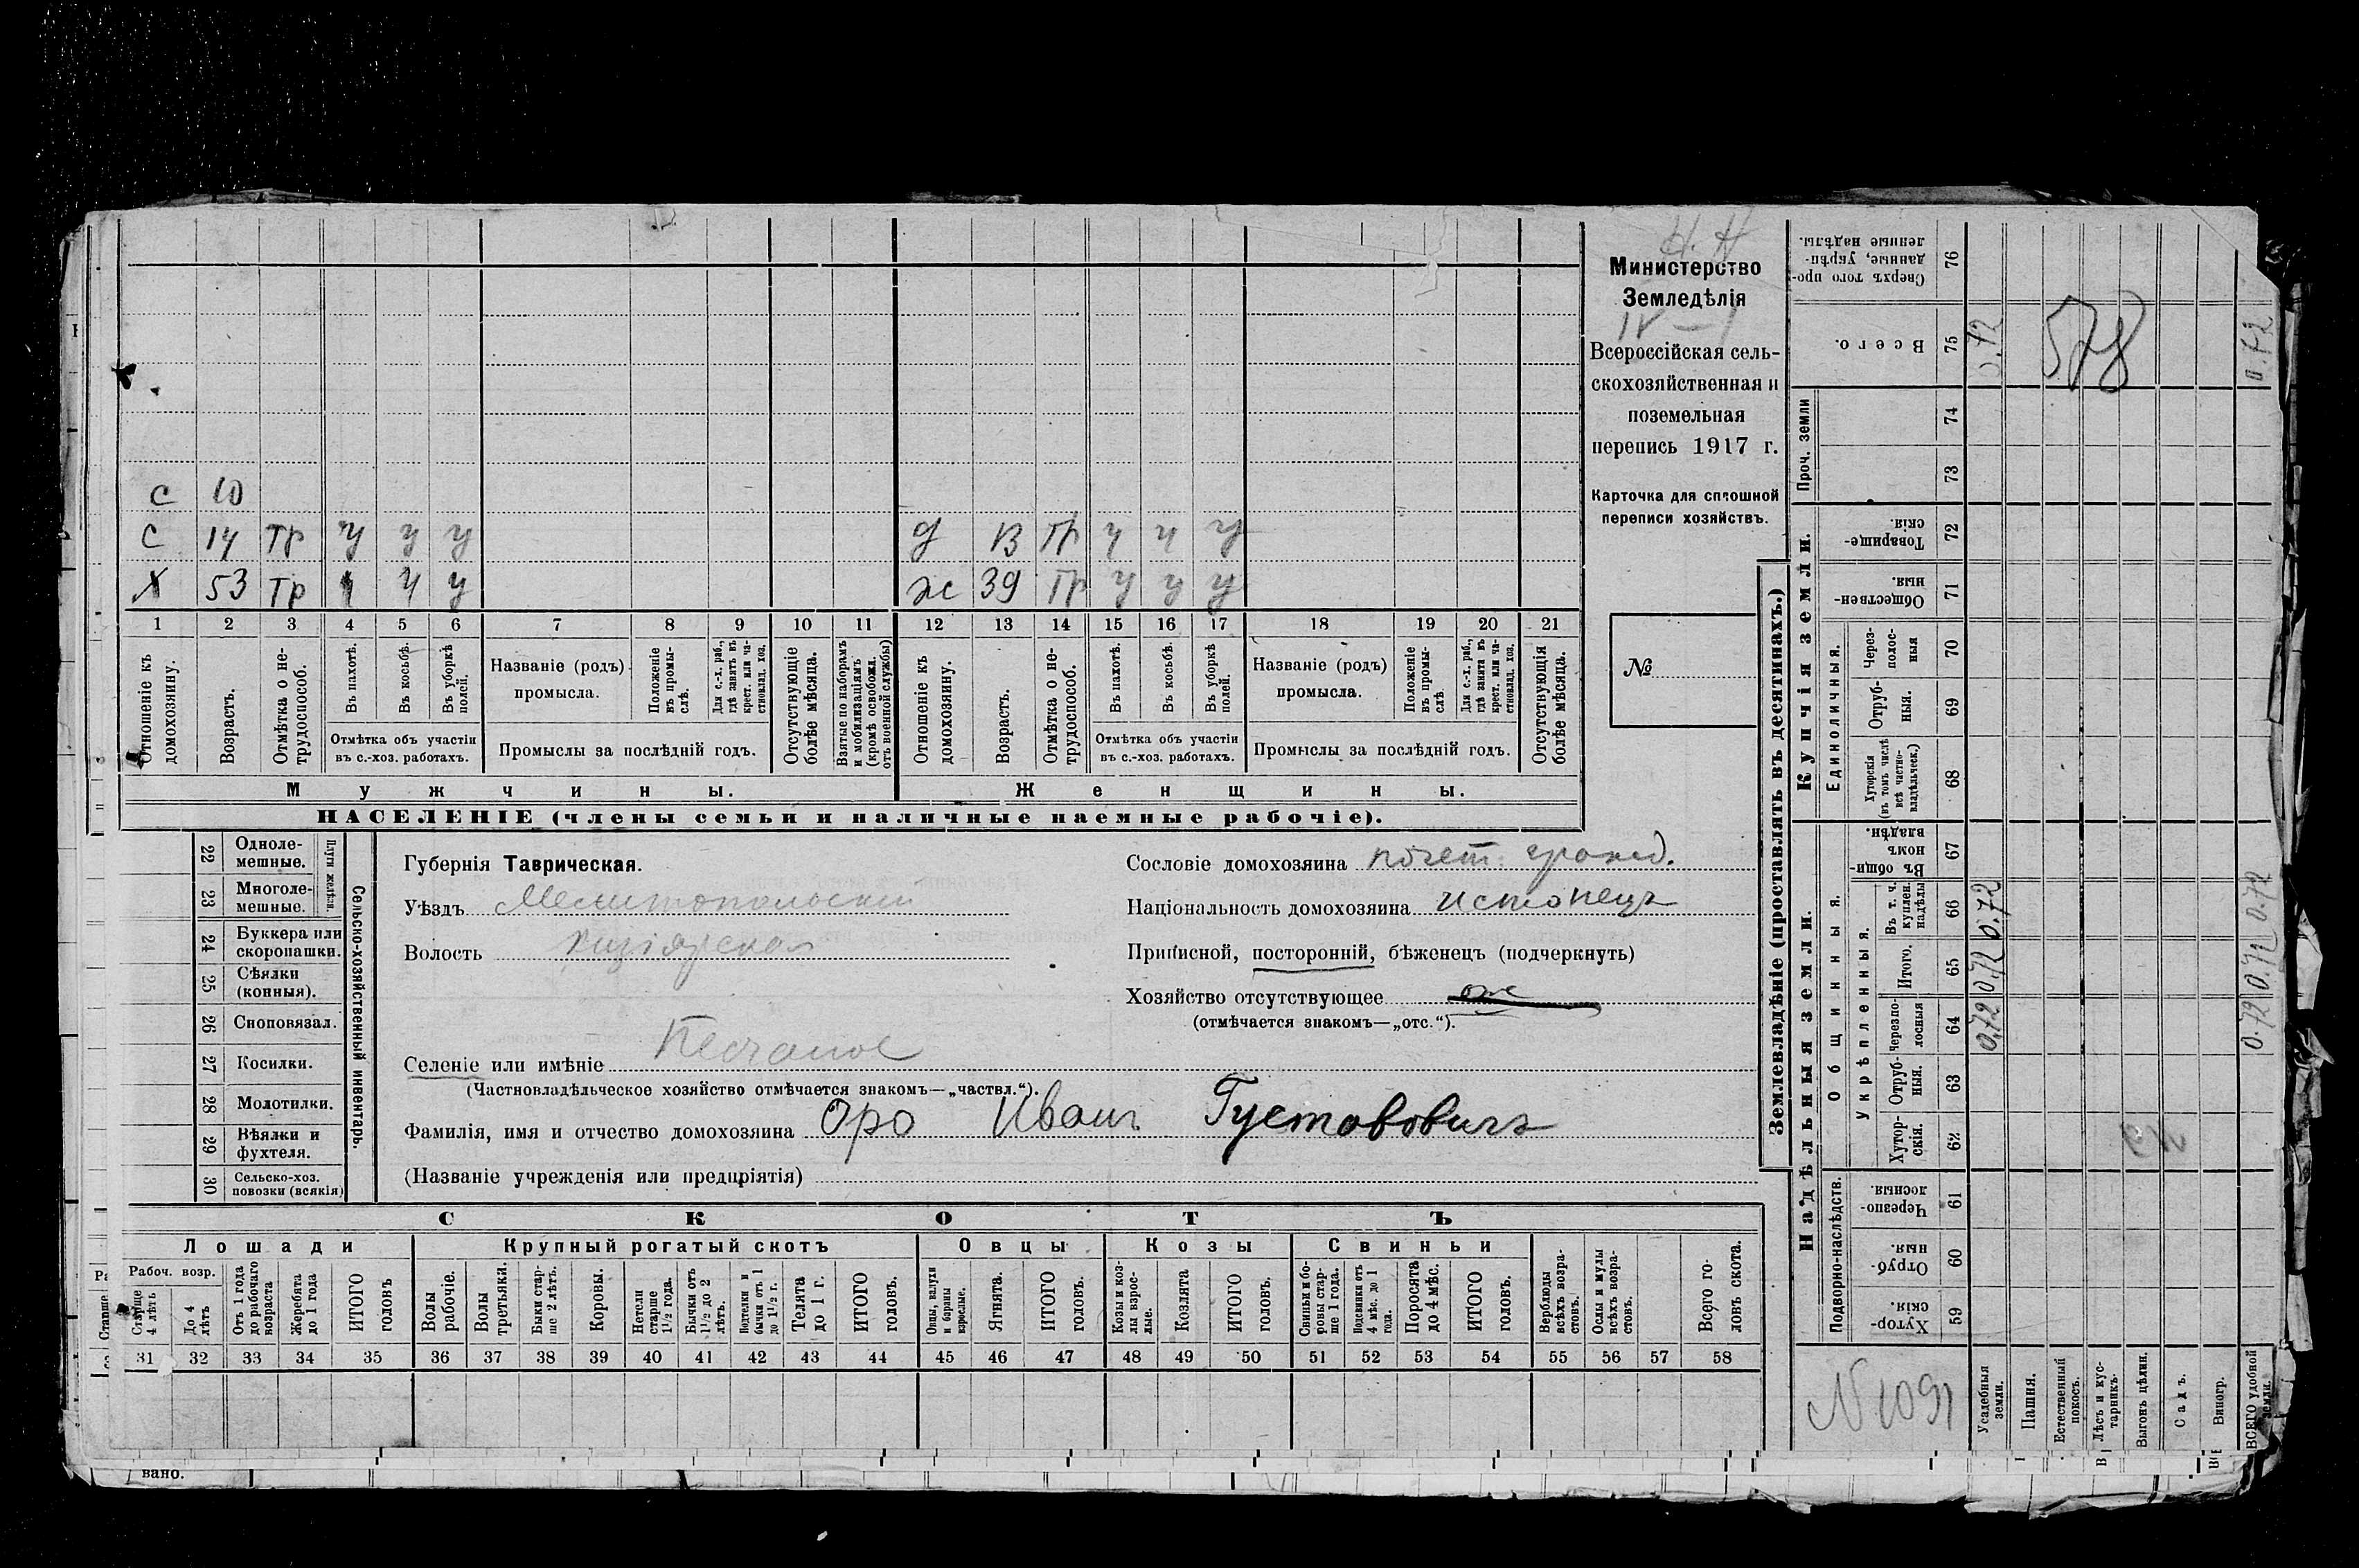 Н. Н
Министерство
Земледѣлія
IV – 1
Всероссійская сель-
скохозяйственная и
поземельная
перепись 1917 г.
Карточка для сплошной
переписи хозяйствъ.
№
С 10
С 14 Тр у у у
Х 53 Тр у у у
д 13 Тр у у у
ж 39 Тр у у у
1 2 3 4 5 6 7 8 9 10 11 12 13 14 15 16 17 18 19 20 21
Отношеніе къ домохозяину.
Возрастъ.
Отмѣтка о не-трудоспособ.
Въ пахотѣ.
Въ косьбѣ.
Въ уборкѣ полей.
Отмѣтка объ участіи
въ с.-хоз. работахъ.
Названіе (родъ)
промысла.
Положеніе въ промы-слѣ.
Для с.-х. раб., гдѣ занятъ въ крест. или ча-стновлад. хоз.
Промыслы за послѣдній годъ.
Отсутствующіе болѣе мѣсяца.
Взятые по наборамъ и мобилизаціямъ (кромѣ освобожд. отъ военной службы)
Отношеніе къ домохозяину.
Возрастъ.
Отмѣтка о не-трудоспособ.
Въ пахотѣ.
Въ косьбѣ.
Въ уборкѣ полей.
Отмѣтка объ участіи
въ с.-хоз. работахъ.
Названіе (родъ)
промысла.
Положеніе въ промы-слѣ
Для с.-х. раб., гдѣ занята въ крест. или ча-стновлад. хоз.
Промыслы за послѣдній годъ.
Отсутствующія болѣе мѣсяца.
Мужчины.
Женщины.
НАСЕЛЕНІЕ (члены семьи и наличные наемные рабочіе).
22 Одноле-мешные.
23 Многоле-мешные.
Плуги желѣзн.
24 Буккера или скоропашки.
25 Сѣялки (конныя).
26 Сноповязал.
27 Косилки.
28 Молотилки.
29 Вѣялки и фухтеля.
30 Сельско-хоз. повозки (всякія)
Сельско-хозяйственный инвентарь.
Губернія Таврическая.
Уѣздъ Мелитопольскій
Волость
Селеніе или имѣніе Песчаное
(Частновладѣльческое хозяйство отмѣчается знакомъ—„частвл.“).
Фамилія, имя и отчество домохозяина Оро Иванъ Густавовичъ
(Названіе учрежденія или предпріятія)
Сословіе домохозяина почет. гражд.
Національность домохозяина истонецъ
Приписной, посторонній, бѣженецъ (подчеркнуть)
Хозяйство отсутствующее
(отмѣчается знакомъ—„отс.“).
СКОТЪ
Лошади
Крупный рогатый скотъ
Овцы
Козы
Свиньи
Рабоч. возр.
Старше 4 лѣтъ
До 4 лѣтъ
Отъ 1 года до рабочаго возраста
Жеребята до 1 года
ИТОГО головъ
Волы рабочіе.
Волы третьяки.
Быки стар-ше 2 лѣтъ.
Коровы.
Нетели старше 1½ года.
Бычки отъ 1½ до 2 лѣтъ.
Подтелки и бычки отъ 1 до 1½ г.
Телята до 1 г.
ИТОГО головъ.
Овцы, валухи и бараны взрослые.
Ягнята.
ИТОГО головъ.
Козы и коз-лы взрос-лые.
Козлята
ИТОГО головъ.
Свиньи и бо-ровы стар-ше 1 года.
Подсвинки отъ 4 мѣс. до 1 года.
Поросята до 4 мѣс.
ИТОГО головъ.
Верблюды всѣхъ возра-стовъ.
Ослы и мулы всѣхъ возра-стовъ.
Всего го-ловъ скота.
31 32 33 34 35 36 37 38 39 40 41 42 43 44 45 46 47 48 49 50 51 52 53 54 55 56 57 58
Землевладѣніе (проставлять въ десятинахъ.)
Надѣльныя земли.
Купчія земли.
Проч. земли
Подворно-наслѣдств.
Общинныя.
Укрѣпленныя.
Единоличныя.
59 Хутор-скія.
60 Отруб-ныя.
61 Черезпо-лосныя.
62 Хутор-скія.
63 Отруб-ныя.
64 Черезпо-лосныя
65 Итого.
66 Въ т. ч. куплен. надѣлы
67 Въ общи-номъ владѣн.
68 Хуторскія (въ томъ числѣ всѣ частно-владѣльческ.)
69 Отруб-ныя.
70 Через-полос-ныя
71 Обществен-ныя.
72 Товарище-скія.
73
74
75 Всего.
76 Сверхъ того про-данные, укрѣп-ленные надѣлы.
Усадебныя земли.
0.72 0.72 0.72
0.72
Пашня.
Естественный покосъ.
Лѣсъ и кус-тарникъ.
Выгонъ цѣлин.
Садъ.
Виногр.
ВСЕГО удобной земли.
0.72 0.72 0.72
0.72
578
№ 1091
вано.